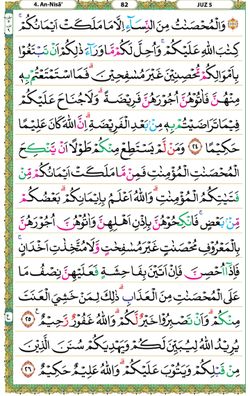 4. An-Nisā' 82 JUZ 5
وَالْمُحْصَنٰتُ مِنَ النِّسَاۤءِ اِلَّا مَا مَلَكَتْ اَيْمَانُكُمْ ۚ
كِتٰبَ اللّٰهِ عَلَيْكُمْ ۚ وَاُحِلَّ لَكُمْ مَّا وَرَاۤءَ ذٰلِكُمْ اَنْ تَبْتَغُوْا
بِاَمْوَالِكُمْ مُّحْصِنِيْنَ غَيْرَ مُسٰفِحِيْنَ ۗ فَمَا اسْتَمْتَعْتُمْ بِهٖ
مِنْهُنَّ فَاٰتُوْهُنَّ اُجُوْرَهُنَّ فَرِيْضَةً ۗ وَلَا جُنَاحَ عَلَيْكُمْ
فِيْمَا تَرٰضَيْتُمْ بِهٖ مِنْۢ بَعْدِ الْفَرِيْضَةِ ۗ اِنَّ اللّٰهَ كَانَ عَلِيْمًا
حَكِيْمًا ٢٤ وَمَنْ لَّمْ يَسْتَطِعْ مِنْكُمْ طَوْلًا اَنْ يَّنْكِحَ
الْمُحْصَنٰتِ الْمُؤْمِنٰتِ فَمِنْ مَّا مَلَكَتْ اَيْمَانُكُمْ مِّنْ
فَتَيٰتِكُمُ الْمُؤْمِنٰتِ ۗ وَاللّٰهُ اَعْلَمُ بِاِيْمَانِكُمْ ۗ بَعْضُكُمْ
مِّنْۢ بَعْضٍ ۚ فَانْكِحُوْهُنَّ بِاِذْنِ اَهْلِهِنَّ وَاٰتُوْهُنَّ اُجُوْرَهُنَّ
بِالْمَعْرُوْفِ مُحْصَنٰتٍ غَيْرَ مُسٰفِحٰتٍ وَّلَا مُتَّخِذٰتِ اَخْدَانٍ ۚ
فَاِذَآ اُحْصِنَّ فَاِنْ اَتَيْنَ بِفَاحِشَةٍ فَعَلَيْهِنَّ نِصْفُ مَا
عَلَى الْمُحْصَنٰتِ مِنَ الْعَذَابِ ۗ ذٰلِكَ لِمَنْ خَشِيَ الْعَنَتَ
مِنْكُمْ ۗ وَاَنْ تَصْبِرُوْا خَيْرٌ لَّكُمْ ۗ وَاللّٰهُ غَفُوْرٌ رَّحِيْمٌ ٢٥
يُرِيْدُ اللّٰهُ لِيُبَيِّنَ لَكُمْ وَيَهْدِيَكُمْ سُنَنَ الَّذِيْنَ
مِنْ قَبْلِكُمْ وَيَتُوْبَ عَلَيْكُمْ ۗ وَاللّٰهُ عَلِيْمٌ حَكِيْمٌ ٢٦